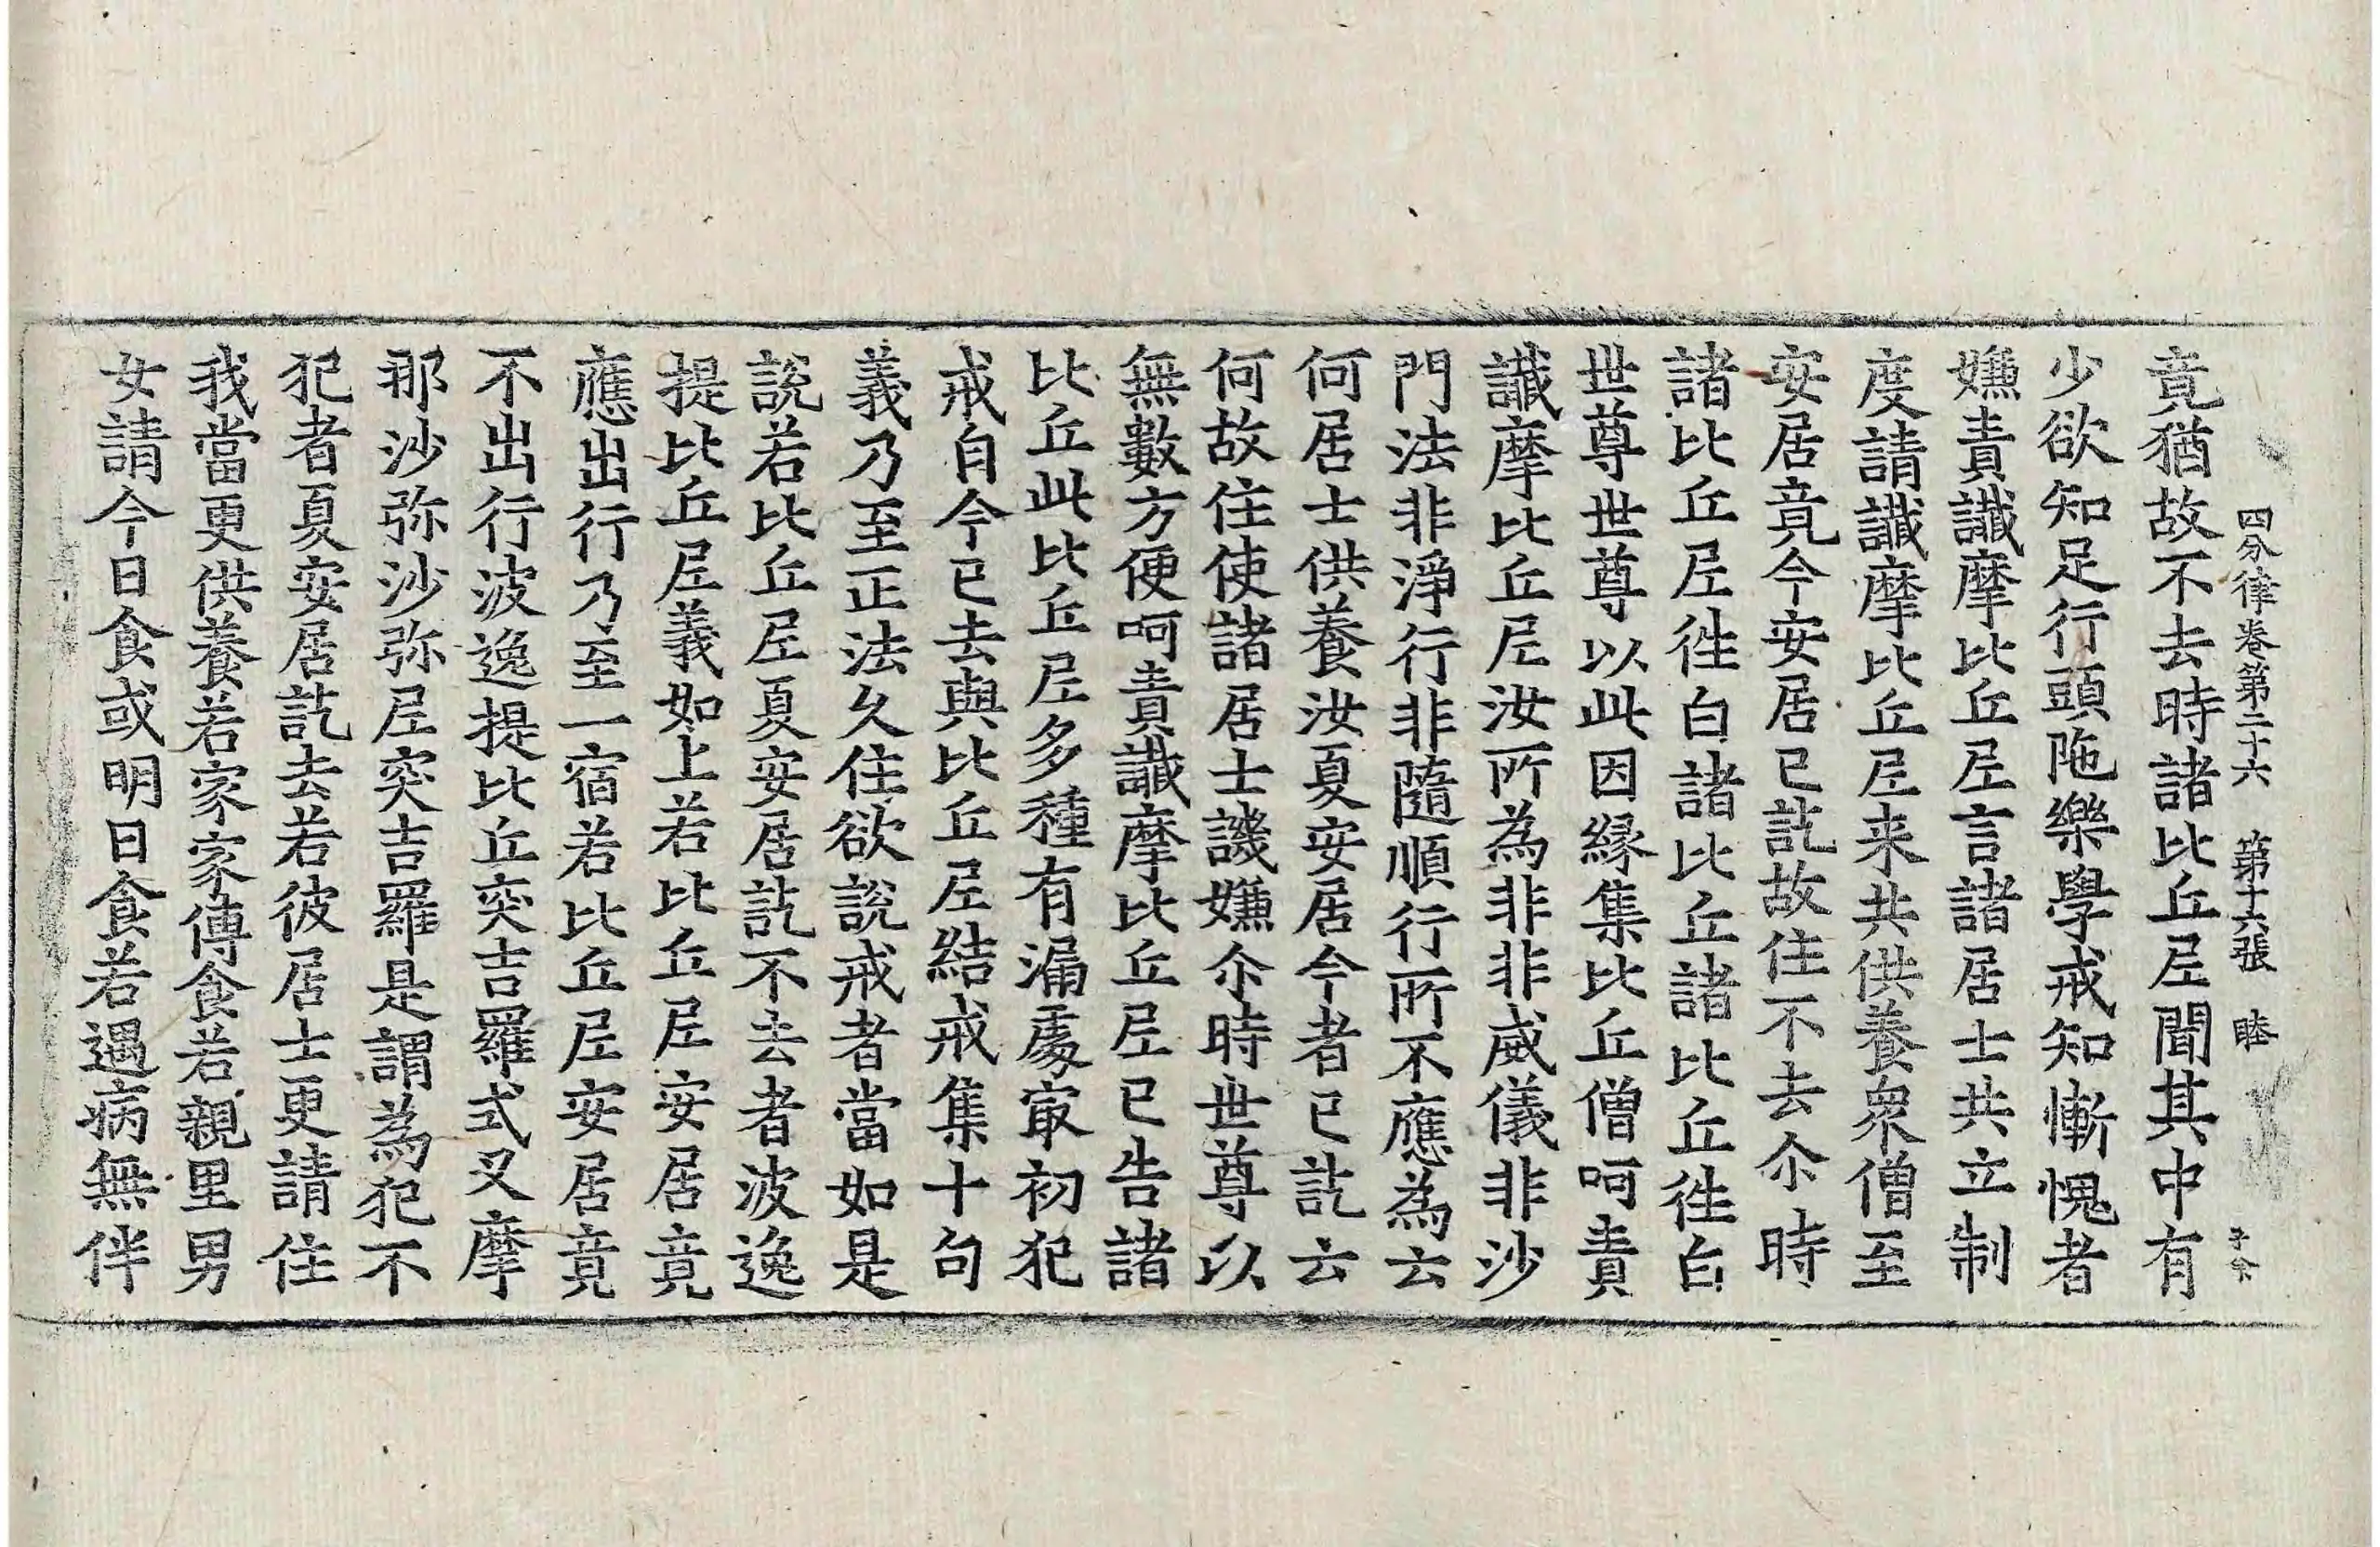 四分律卷第二十六 第十六張 睦
竟猶故不去時諸比丘尼聞其中有
少欲知足行頭陁樂學戒知慚愧者
嫌責讖摩比丘尼言諸居士共立制
度請讖摩比丘尼来共供養衆僧至
安居竟今安居已訖故住不去尒時
諸比丘尼徃白諸比丘諸比丘徃白
世尊世尊以此因緣集比丘僧呵責
讖摩比丘尼汝所為非非威儀非沙
門法非淨行非隨順行所不應為云
何居士供養汝夏安居今者已訖云
何故住使諸居士譏嫌尒時世尊以
無數方便呵責讖摩比丘尼已告諸
比丘此比丘尼多種有漏處㝡初犯
戒自今已去與比丘尼結戒集十句
義乃至正法久住欲說戒者當如是
說若比丘尼夏安居訖不去者波逸
提比丘尼義如上若比丘尼安居竟
應出行乃至一宿若比丘尼安居竟
不出行波逸提比丘突吉羅式叉摩
那沙弥沙弥尼突吉羅是謂為犯不
犯者夏安居訖去若彼居士更請住
我當更供養若家家傳食若親里男
女請今日食或明日食若遇病無伴